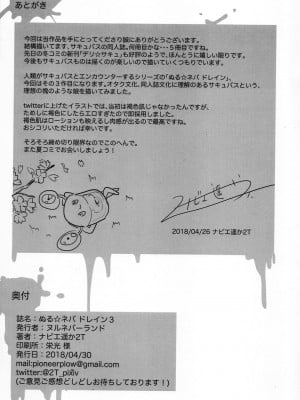 あとがき
今回は当作品を手にとってくださり誠にありがとうございます。
結構描いてます、サキュバスの同人誌。何冊目かな…5冊目ですね。
先日の冬コミの新刊「デリ☆サキュ」も好評のようで、ほんとうに嬉しい限りです。
今後もサキュバスものは描くのが楽しいので描いていくつもりでいます。
人類がサキュバスとエンカウンターするシリーズの「ぬる☆ネバ ドレイン」、
今回はその3作目になります。オタク文化、同人誌文化に理解のあるサキュバスという
理想の塊のような娘を描いてみました。
twitterに上げたイラストでは、当初は褐色肌じゃなかったんですが、
ために褐色肌にしたらエロすぎたので即採用しました。
褐色肌はローションも映えるし肉感が出るので最高ですね。
おシコりいただければ幸いです。
そろそろ締め切り限界なのでこのへんで。
また夏コミでお会いしましょう！
ナビエ遥か2T
2018/04/26 ナビエ遥か2T
奥付
誌名：ぬる☆ネバ ドレイン3
発行者：ヌルネバーランド
著者：ナビエ遥か2T
印刷所：栄光 様
発行日：2018/04/30
mail:pioneerplow@gmail.com
twitter:@2T_pixiv
(ご意見ご感想どしどしお待ちしております！)